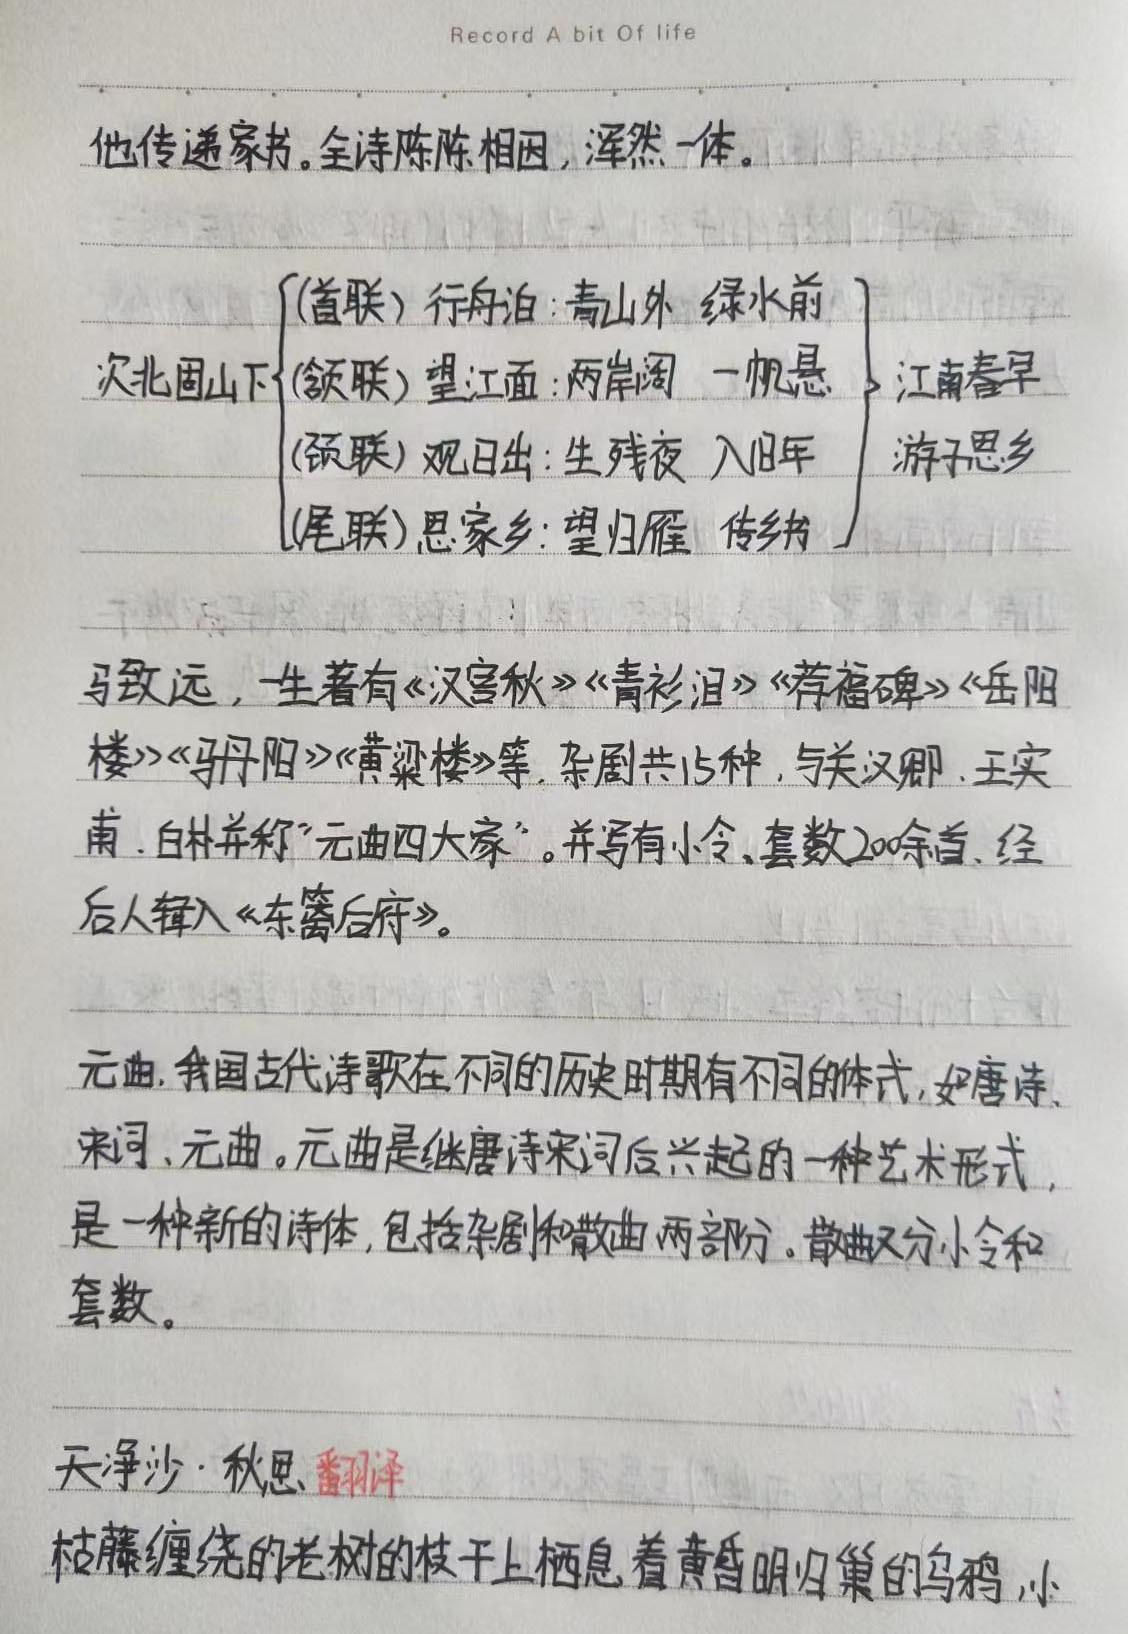 Record A bit Of life
他传递家书。全诗陈陈相因，浑然一体。
(首联) 行舟泊：青山外 绿水前
次北固山下 (颔联) 望江面：两岸阔 一帆悬 江南春早
(颈联) 观日出：生残夜 入旧年 游子思乡
(尾联) 思家乡：望归雁 传乡书
马致远，一生著有《汉宫秋》《青衫泪》《荐福碑》《岳阳
楼》《马丹阳》《黄粱楼》等、杂剧共15种，与关汉卿、王实
甫、白朴并称“元曲四大家”。并写有小令、套数200余首、经
后人辑入《东篱后府》。
元曲，我国古代诗歌在不同的历史时期有不同的体式，如唐诗、
宋词、元曲。元曲是继唐诗宋词后兴起的一种艺术形式，
是一种新的诗体，包括杂剧和散曲两部分。散曲又分小令和
套数。
天净沙·秋思 翻译
枯藤缠绕的老树的枝干上栖息着黄昏明归巢的乌鸦，小